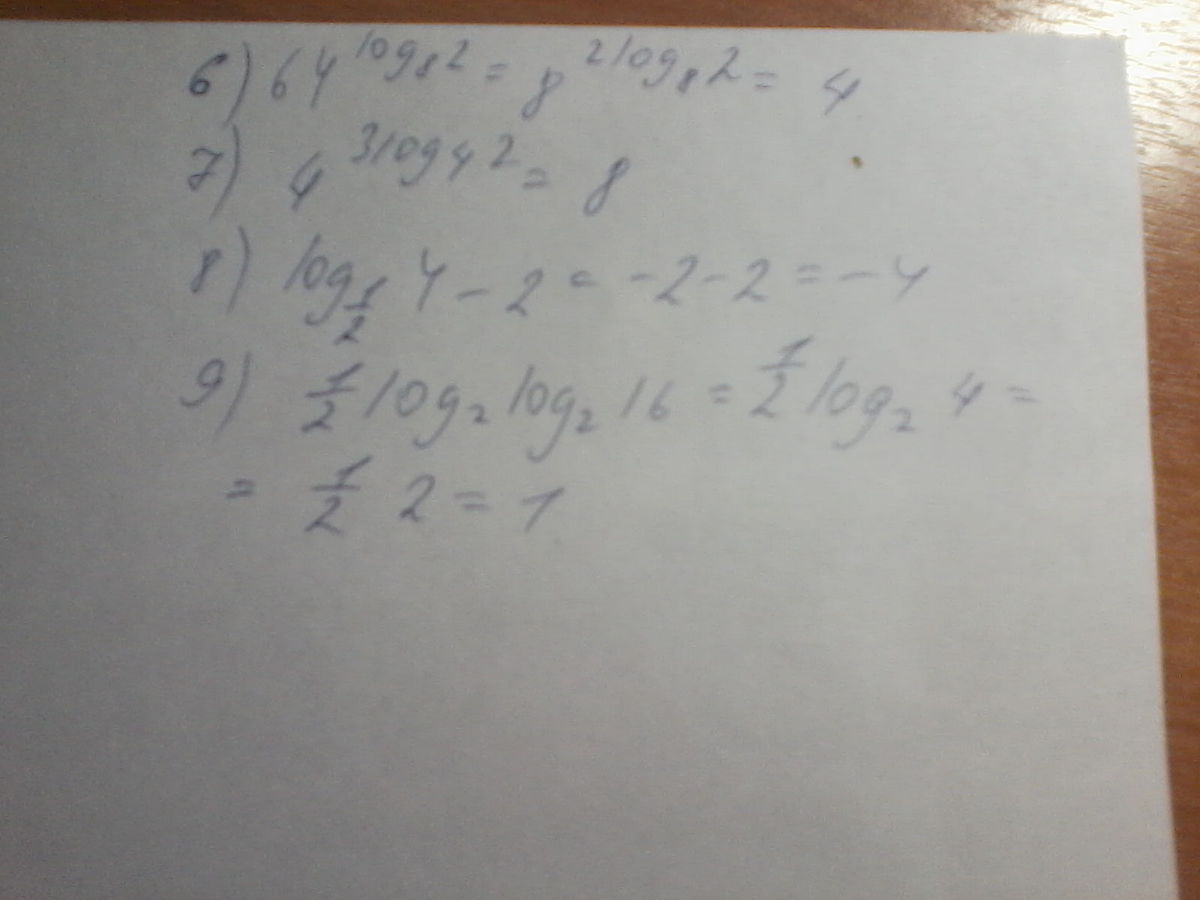 6) 64^{log_8 2} = 8^{2log_8 2} = 4
7) 4^{3log_4 2} = 8
8) log_{1/2} 4 - 2 = -2 - 2 = -4
9) 1/2 log_2 log_2 16 = 1/2 log_2 4 =
= 1/2 2 = 1